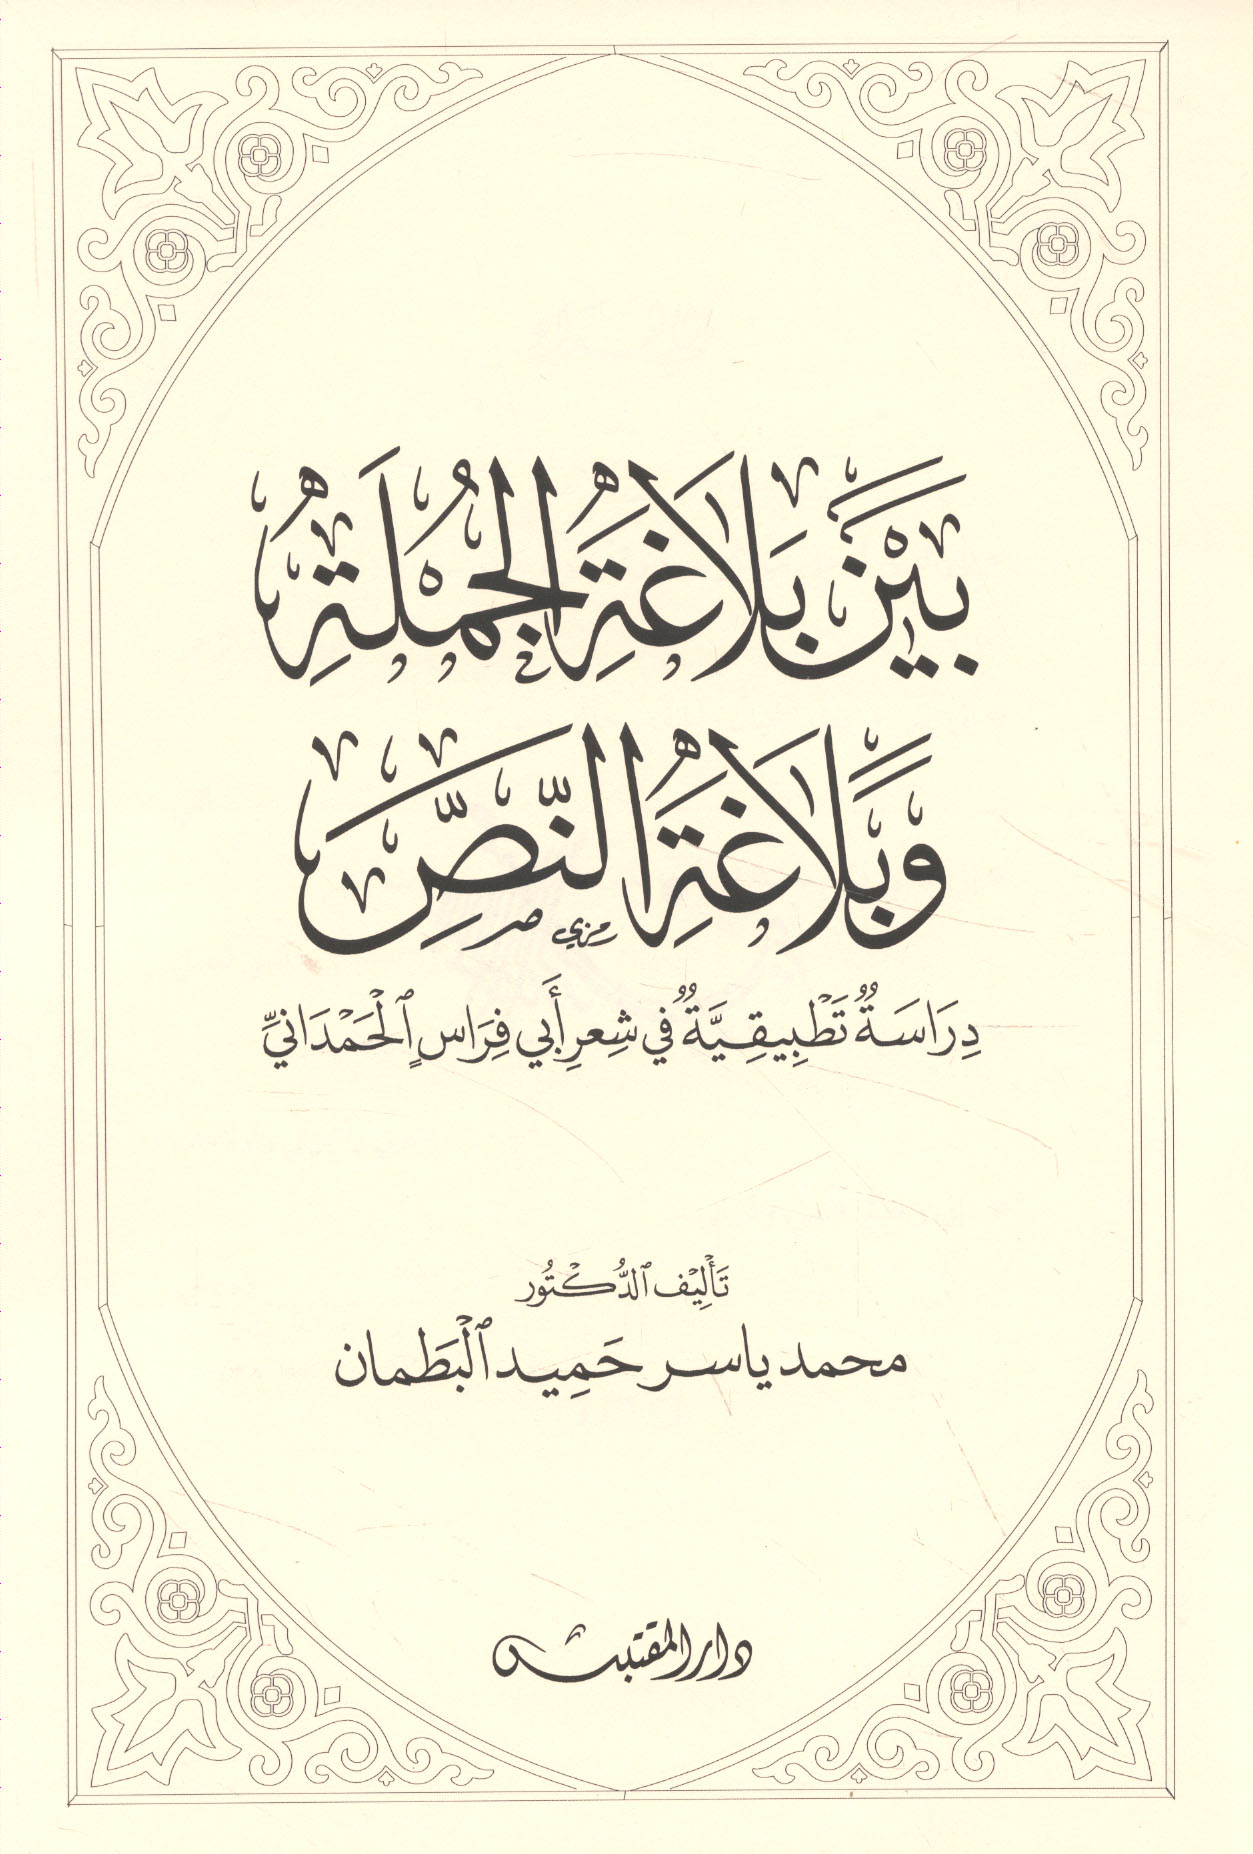 بَيْنَ بَلَاغَةِ الجُمْلَةِ
وَبَلَاغَةِ النَّصِّ
دِرَاسَةٌ تَطْبِيقِيَّةٌ فِي شِعرِ أَبي فِرَاسٍ ٱلْحَمْدَانيِّ
تَأْلِيْف ٱلدُّكْتُور
محمد ياسر حَمِيد ٱلْبَطْمان
دار المقتبس